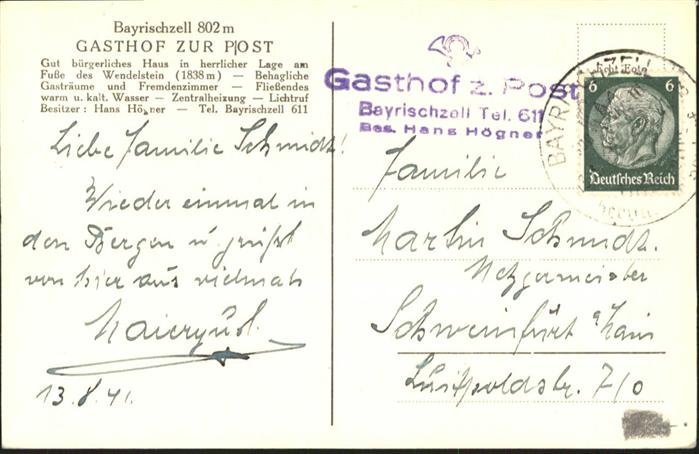 Bayrischzell 802 m
GASTHOF ZUR POST
Gut bürgerliches Haus in herrlicher Lage am
Fuße des Wendelstein (1838 m) — Behagliche
Gasträume und Fremdenzimmer — Fließendes
warm u. kalt. Wasser — Zentralheizung — Lichtruf
Besitzer: Hans Högner — Tel. Bayrischzell 611
Liebe Familie Schmidt!
Wieder einmal in
den Bergen u. grüßt
von hier aus vielmals
13.8.41.
Gasthof z. Post
Bayrischzell Tel. 611
Bes. Hans Högner
6 6
Deutsches Reich
BAYRISCHZELL
Familie
Martin Schmidt.
Metzgermeister
Schweinfurt a/Main
Luitpoldstr. 7/0